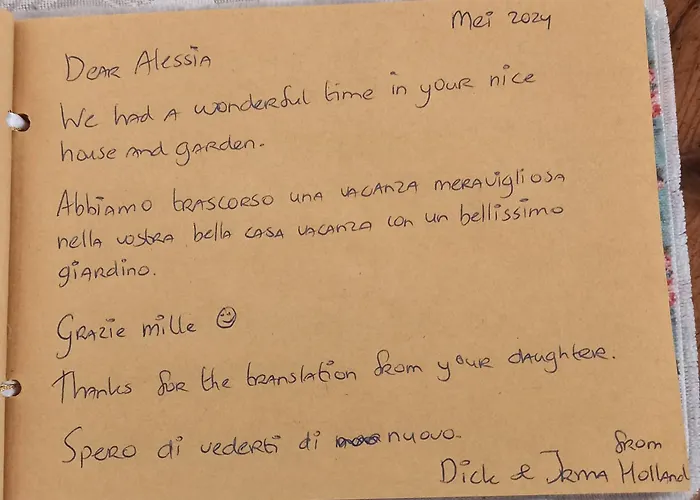 Mei 2024
Dear Alessia
We had a wonderful time in your nice
house and garden.
Abbiamo trascorso una vacanza meravigliosa
nella vostra bella casa vacanza con un bellissimo
giardino.
Grazie mille ☺
Thanks for the translation from your daughter.
Spero di vederti di nuovo.
from
Dick & Irma Holland